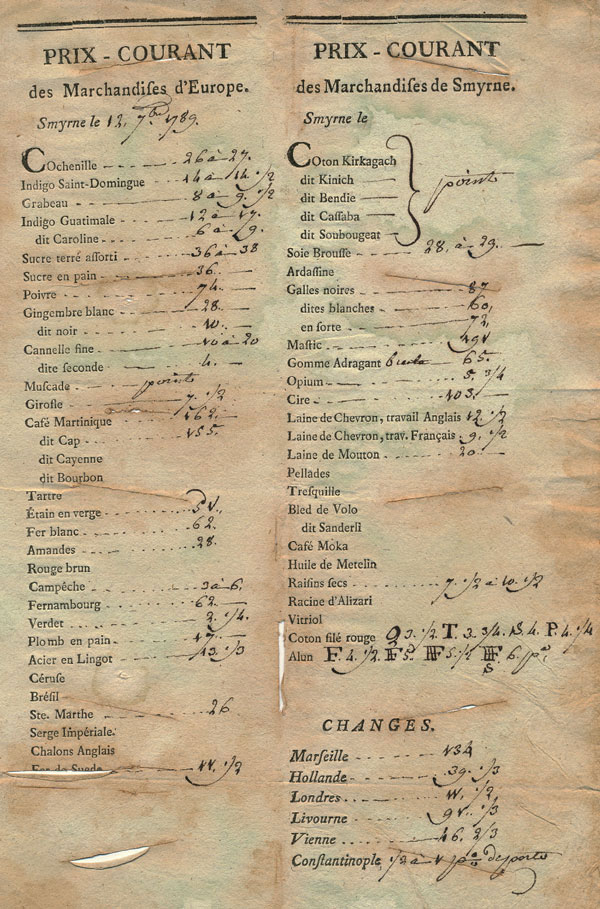 PRIX - COURANT
des Marchandiſes d'Europe.
Smyrne le 12. 7bre 1789.
COchenille - - - 26 à 27.
Indigo Saint-Domingue - 14 à 14. 1/2
Grabeau - - - 8 à 9. 1/2
Indigo Guatimale - - - 12 à 17.
dit Caroline - - - 6 à 9.
Sucre terré aſſorti - - - 36 à 38
Sucre en pain - - - 36.
Poivre - - - 74.
Gingembre blanc - - - 28.
dit noir - - - 10.
Cannelle fine - - - 10 à 20
dite ſeconde - - - 4.
Muſcade - - - point
Girofle - - - 7. 1/2
Café Martinique - - - 162.
dit Cap - - - 155.
dit Cayenne
dit Bourbon
Tartre
Étain en verge - - - 51.
Fer blanc - - - 62.
Amandes - - - 28.
Rouge brun
Campêche - - - 3 à 6.
Fernambourg - - - 62
Verdet - - - 2. 1/4.
Plomb en pain - - - 17.
Acier en Lingot - - - 13. 1/3
Céruſe
Bréſil
Ste. Marthe - - - 26
Serge Impériale.
Chalons Anglais
Fer de Suede - - - 11. 1/2
PRIX - COURANT
des Marchandiſes de Smyrne.
Smyrne le
COton Kirkagach
dit Kinich
dit Bendie
dit Caſſaba
dit Soubougeat
point
Soie Brouſſe - - - 28. à 29.
Ardaſſine
Galles noires - - - 87
dites blanches - - - 60,
en ſorte - - - 72,
Maſtic - - - 491
Gomme Adragant 65.
Opium - - - 5. 3/4
Cire - - - 103.
Laine de Chevron, travail Anglais 12. 1/2
Laine de Chevron, trav. Français - 9. 1/2
Laine de Mouton - - - 20
Pellades
Treſquille
Bled de Volo
dit Sanderli
Café Moka
Huile de Metelin
Raiſins ſecs - - - 7. 1/2 à 10. 1/2
Racine d'Alizari
Vitriol
Coton filé rouge Q 3. 1/2 T. 3. 3/4 S. 4. P. 4. 1/4
Alun F. 4. 1/2. FF 5. FF 5. 1/2 FF 6.
CHANGES.
Marſeille - - - 134
Hollande - - - 39. 1/3
Londres - - - 11. 1/2,
Livourne - - - 91. 1/3
Vienne - - - 46. 2/3
Conſtantinople 1/2 à 1